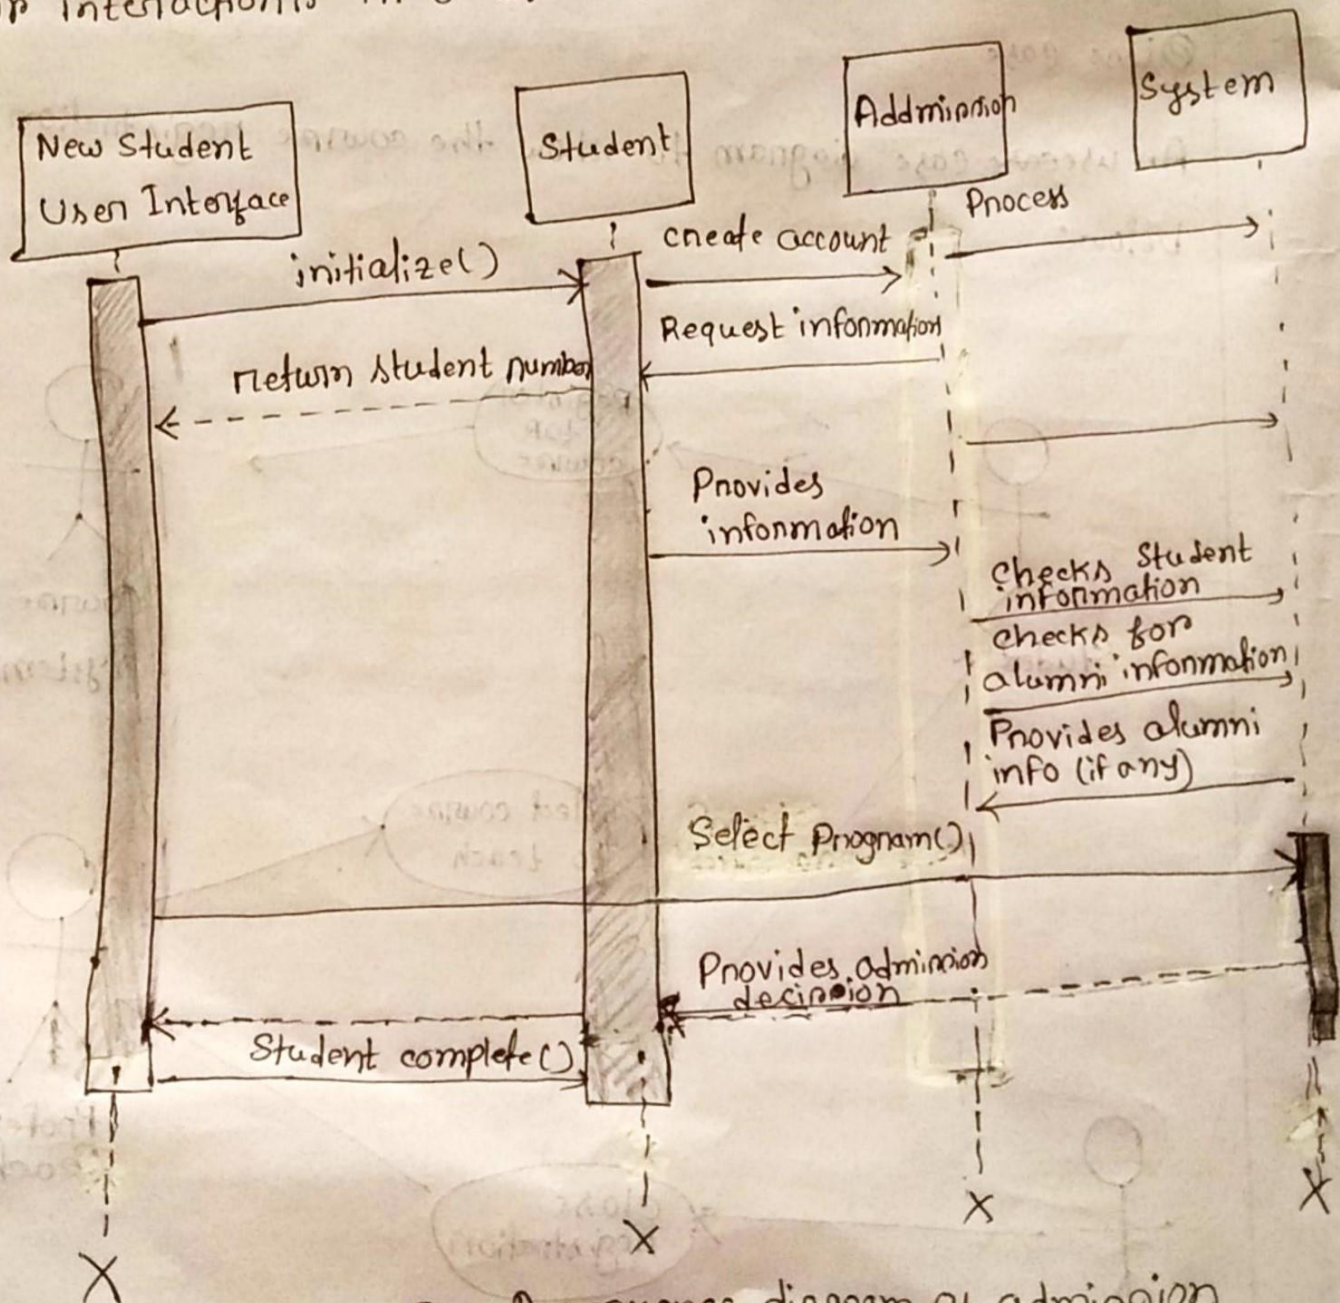 interactions in
New Student
User Interface
Student
Addmission
System
Process
create account
initialize()
Request information
return student number
Provides
information
Checks Student
information
checks for
alumni information
Provides alumni
info (if any)
Select Program()
Provides admission
decission
Student complete()
X
X
X
X
diagram of admission